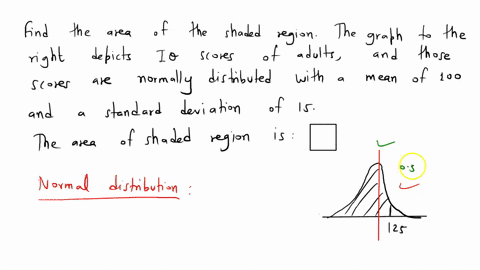 Find the area of the shaded region. The graph to the
right depicts IQ scores of adults, and those
scores are normally distributed with a mean of 100
and a standard deviation of 15.
The area of shaded region is:
Normal distribution:
0.5
125